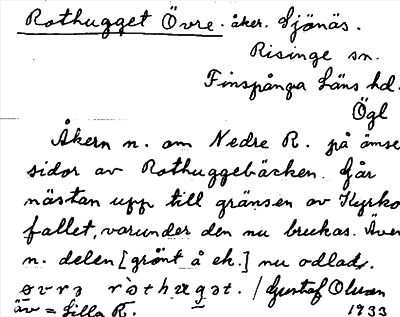 Rothugget Övre. åker. Sjönäs.
Risinge sn.
Finspånga Läns hd.
Ögl
Åkern n. om Nedre R. på ömse
sidor av Rothuggebäcken. Går
nästan upp till gränsen av Kyrko
fallet, varunder den nu brukas. Även
n. delen [grönt å ek.] nu odlad.
/ Gustaf Olson
äv = Lilla R. 1933